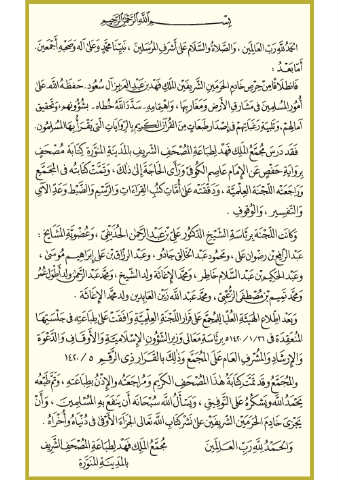 بِسْمِ اللَّهِ الرَّحْمَنِ الرَّحِيمِ
الحمدُ للَّهِ ربِّ العالمين ، والصَّلاة والسَّلام على أشرف المرسلين ، نبيِّنا محمَّد وعلى آله وصحبه أجمعين .
أما بعد :
فانطلاقًا من حرص خادم الحرمين الشريفين الملك فهد بن عبد العزيز آل سعود . حفظه الله على
أمور المسلمين في مشارق الأرض ومغاربها ، واهتمامه . سدَّد الله خُطاه . بشؤونهم وتحقيق
آمالهم ، وتلبية رغباتهم في إصدار طبعات من القرآن الكريم بالروايات التي يقرأ بها المسلمون .
فقد درس مجمَّع الملك فهد لطباعة المصحف الشريف بالمدينة المنورة كتابة مصحف
برواية حفص عن الإمام عاصم الكوفي ورأى الحاجة إلى ذلك ، وتمَّت كتابته في المجمَّع
وراجعته اللَّجنة العلميَّة ، ودقَّقته على أمَّات كتب القراءات والرَّسم والضَّبط وعدِّ الآي
والتفسير ، والوقوف .
وكانت اللَّجنة برئاسة الشيخ الدكتور علي بن عبد الرحمن الحذيفي ، وعضوية المشايخ :
عبد الرافع بن رضوان علي ، ومحمود عبد الخالق جادو ، وعبد الرزاق بن علي إبراهيم موسى ،
وعبد الحكيم بن عبد السلام خاطر ، ومحمد الإغاثة ولد الشيخ ، ومحمد عبد الرحمن ولد أطول عمر
ومحمد تميم بن مصطفى الزُّعبي ، ومحمد عبد الله زين العابدين ولد محمد الإغاثة .
وبعد اطلاع الهيئة العليا للمجمَّع على قرار اللَّجنة العلميَّة وافقت على طباعته في جلستها
المنعقدة في ١٤٢٠/١/٢٦هـ برئاسة معالي وزير الشؤون الإسلامية والأوقاف والدعوة
والإرشاد والمشرف العام على المجمَّع وذلك بالقرار ذي الرقم ١٤٢٠/٥ .
والمجمَّع وقد تمَّت كتابة هذا المصحف الكريم ومراجعته والإذن بطباعته ، وتمَّ طبعه
يحمد الله ويشكره على التوفيق ، ويسأل الله سبحانه أن ينفع به المسلمين ، وأن
يجزي خادم الحرمين الشريفين على نشر كتاب الله تعالى الجزاء الأوفى في دنياه وأخراه .
والحمد لله رب العالمين
مجمَّع الملك فهد لطباعة المصحف الشريف
بالمدينة المنورة